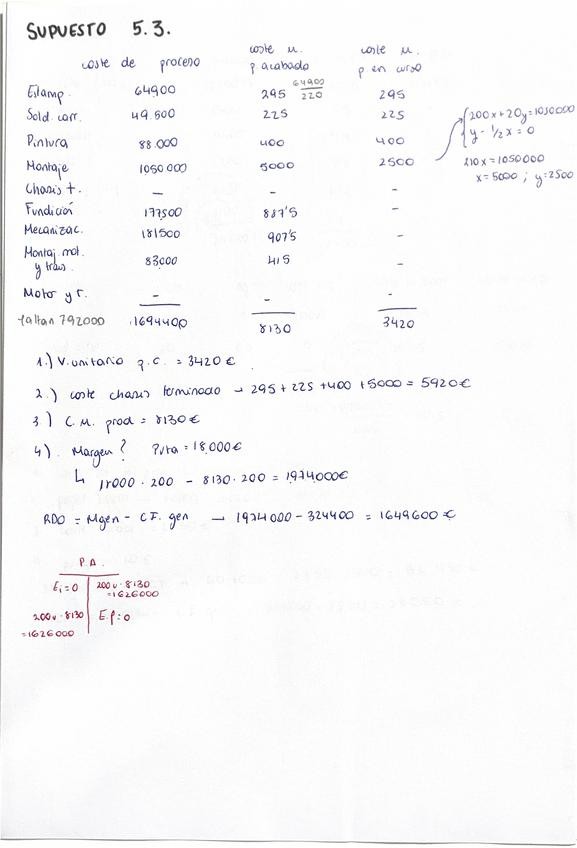 SUPUESTO 5.3.
coste de proceso coste u. p acabado coste u. p en curso
Estamp. 64900 295 64900/220 295
Sold. carr. 49.500 225 225
Pintura 88.000 400 400
Montaje 1050 000 5000 2500
200x+20y=1050000
y - 1/2 x = 0
210x = 1050000
x = 5000 ; y=2500
Chasis t. - - -
Fundición 177500 887'5 -
Mecanizac. 181500 907'5 -
Montaj mot. y trans. 83000 415 -
Motor y t. - - -
faltan 792000 1694400 8130 3420
1.) V.unitario p.c. = 3420 €
2.) coste chasis terminado → 295 + 225 + 400 + 5000 = 5920 €
3) C.M. prod = 8130 €
4). Margen? Pvta = 18.000 €
↳ 18000 · 200 - 8130 · 200 = 1974000€
RDO = Mgen - C.F. gen → 1974000 - 324400 = 1649600 €
P.A.
Ei = 0 200u · 8130 =1626000
200u · 8130 =1626000 E.f = 0